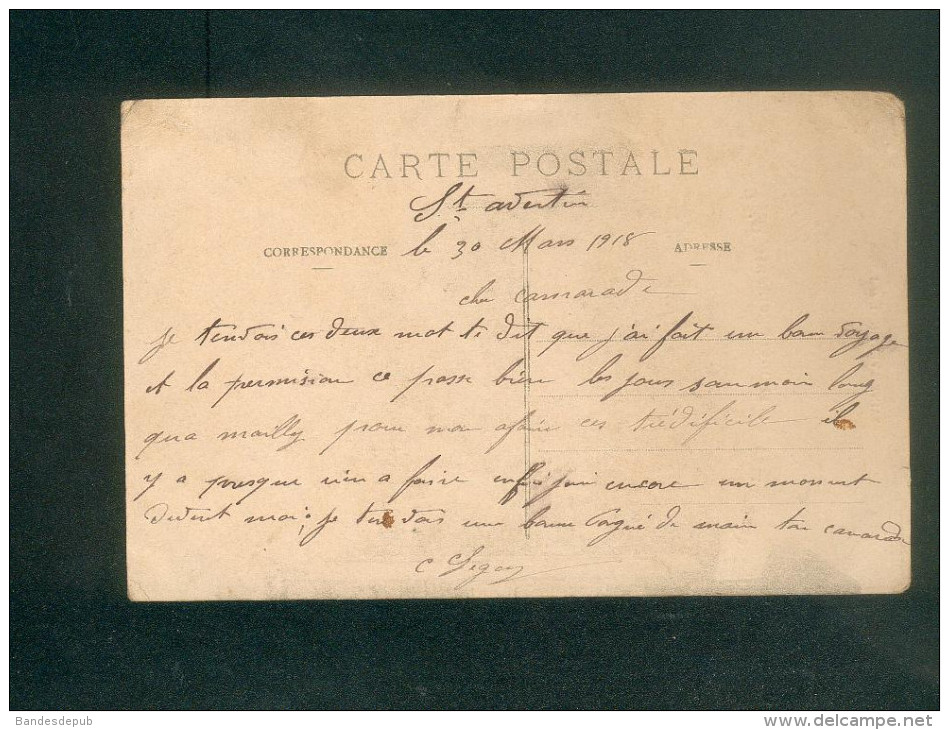 CARTE POSTALE
St avertin
CORRESPONDANCE le 30 Mars 1918 ADRESSE
cher camarade
je tendois ces deux mot ti dit que j'ai fait un bon voyage
et la permision ce passe bien les jours son moin long
qua mailly pour mon afair ces trédificile il
y a presque rien a faire enfin j'ai encore un moment
devent moi, je tendois une bonne pogné de main ton camarade
C
Bandesdepub
www.delcampe.net